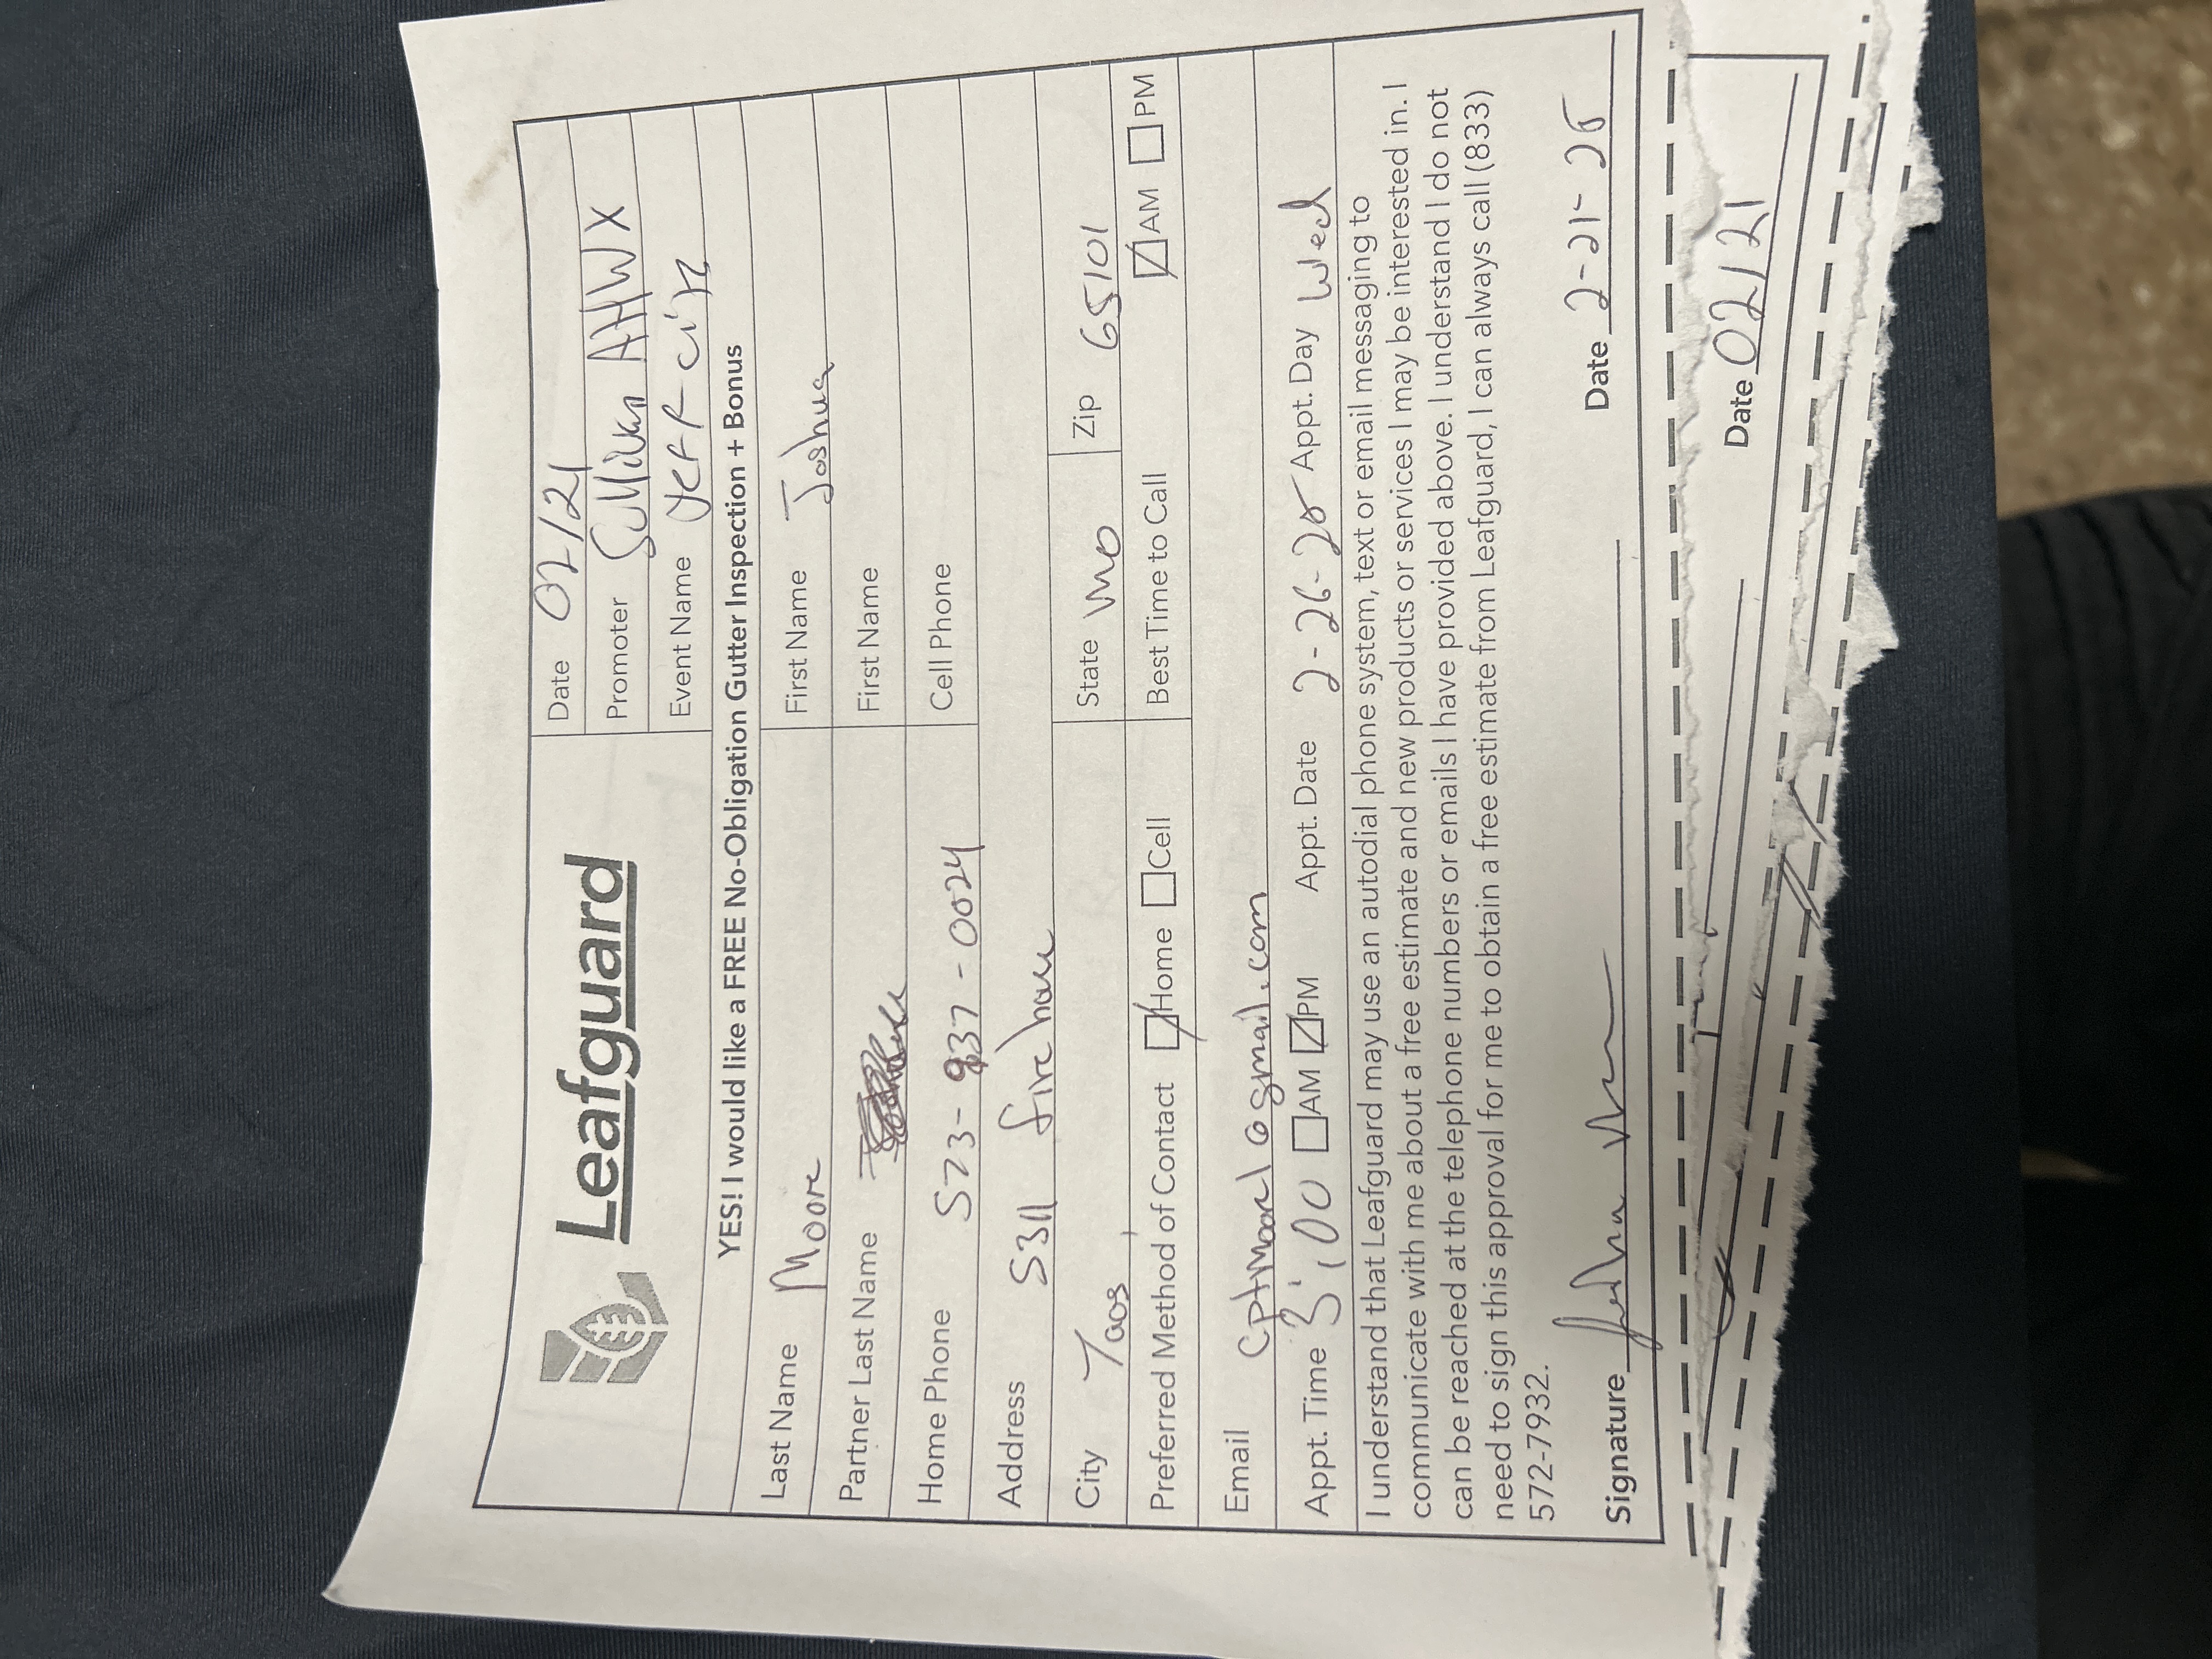 Leafguard
Date 02/21
Promoter Sullivan AHWX
Event Name Jeff city
YES! I would like a FREE No-Obligation Gutter Inspection + Bonus
Last Name Moore First Name Joshua
Partner Last Name First Name
Home Phone 573-837-0024 Cell Phone
Address 5311 firehouse
City Taos, State Mo Zip 65101
Preferred Method of Contact Home Cell Best Time to Call AM PM
Email cptmoore1@gmail.com
Appt. Time 3:00 AM PM Appt. Date 2-26-25 Appt. Day Wed
I understand that Leafguard may use an autodial phone system, text or email messaging to
communicate with me about a free estimate and new products or services I may be interested in. I
can be reached at the telephone numbers or emails I have provided above. I understand I do not
need to sign this approval for me to obtain a free estimate from Leafguard, I can always call (833)
572-7932.
Signature Joshua Moore Date 2-21-25
Date 02/21